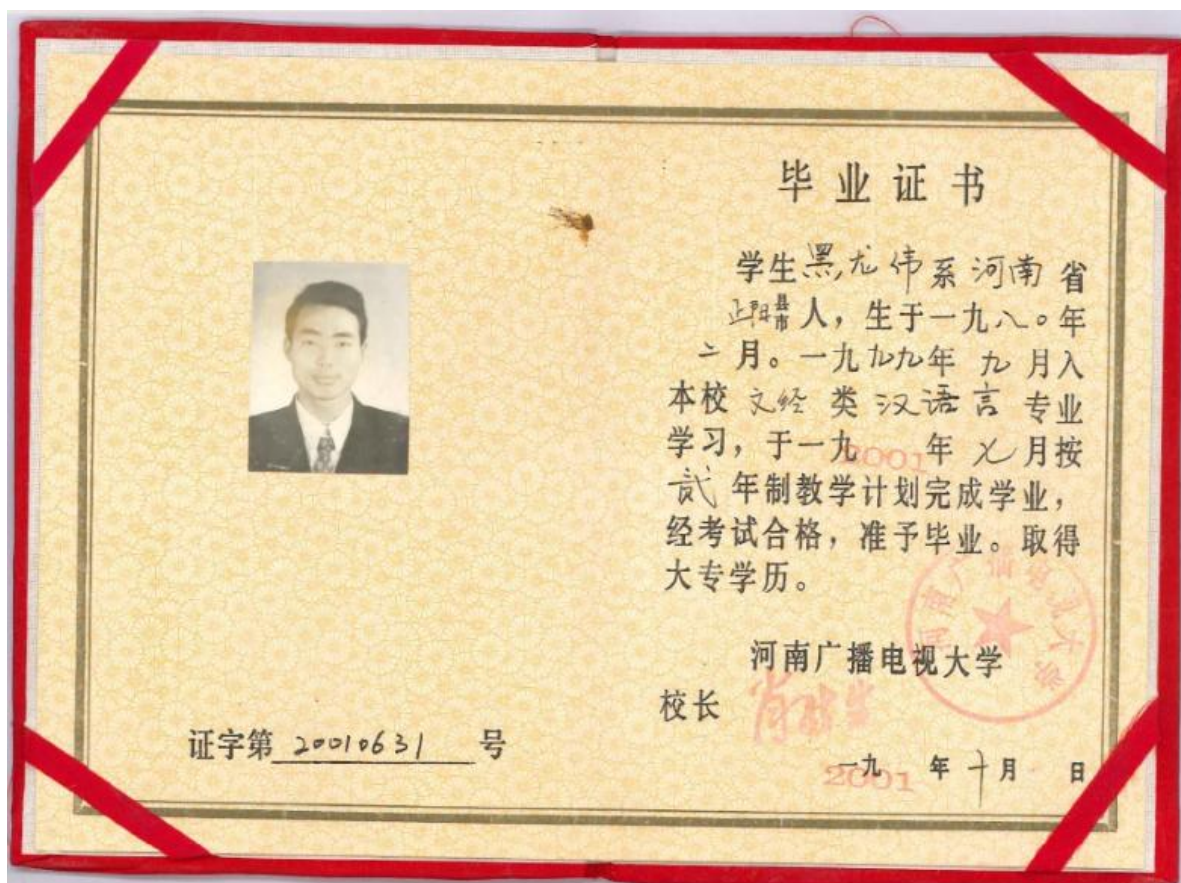 毕业证书
学生黑龙伟系河南省
正阳县市人，生于一九八〇年
二月。一九九九年九月入
本校文经类汉语言专业
学习，于一九2001年七月按
贰年制教学计划完成学业，
经考试合格，准予毕业。取得
大专学历。
河南广播电视大学
校长
一九2001年十月 日
证字第20010631号